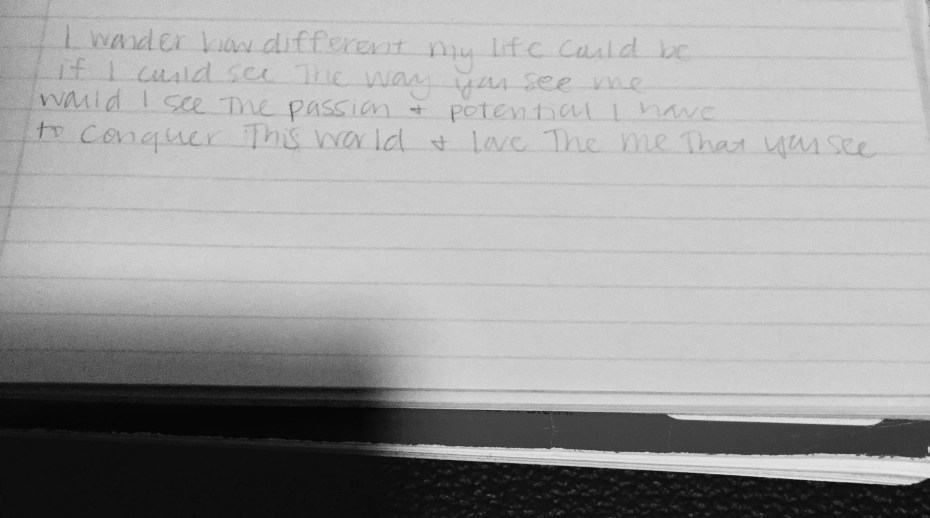 I wonder how different my life could be
if I could see The way you see me
would I see The passion + potential I have
to conquer This world + love The me That you see